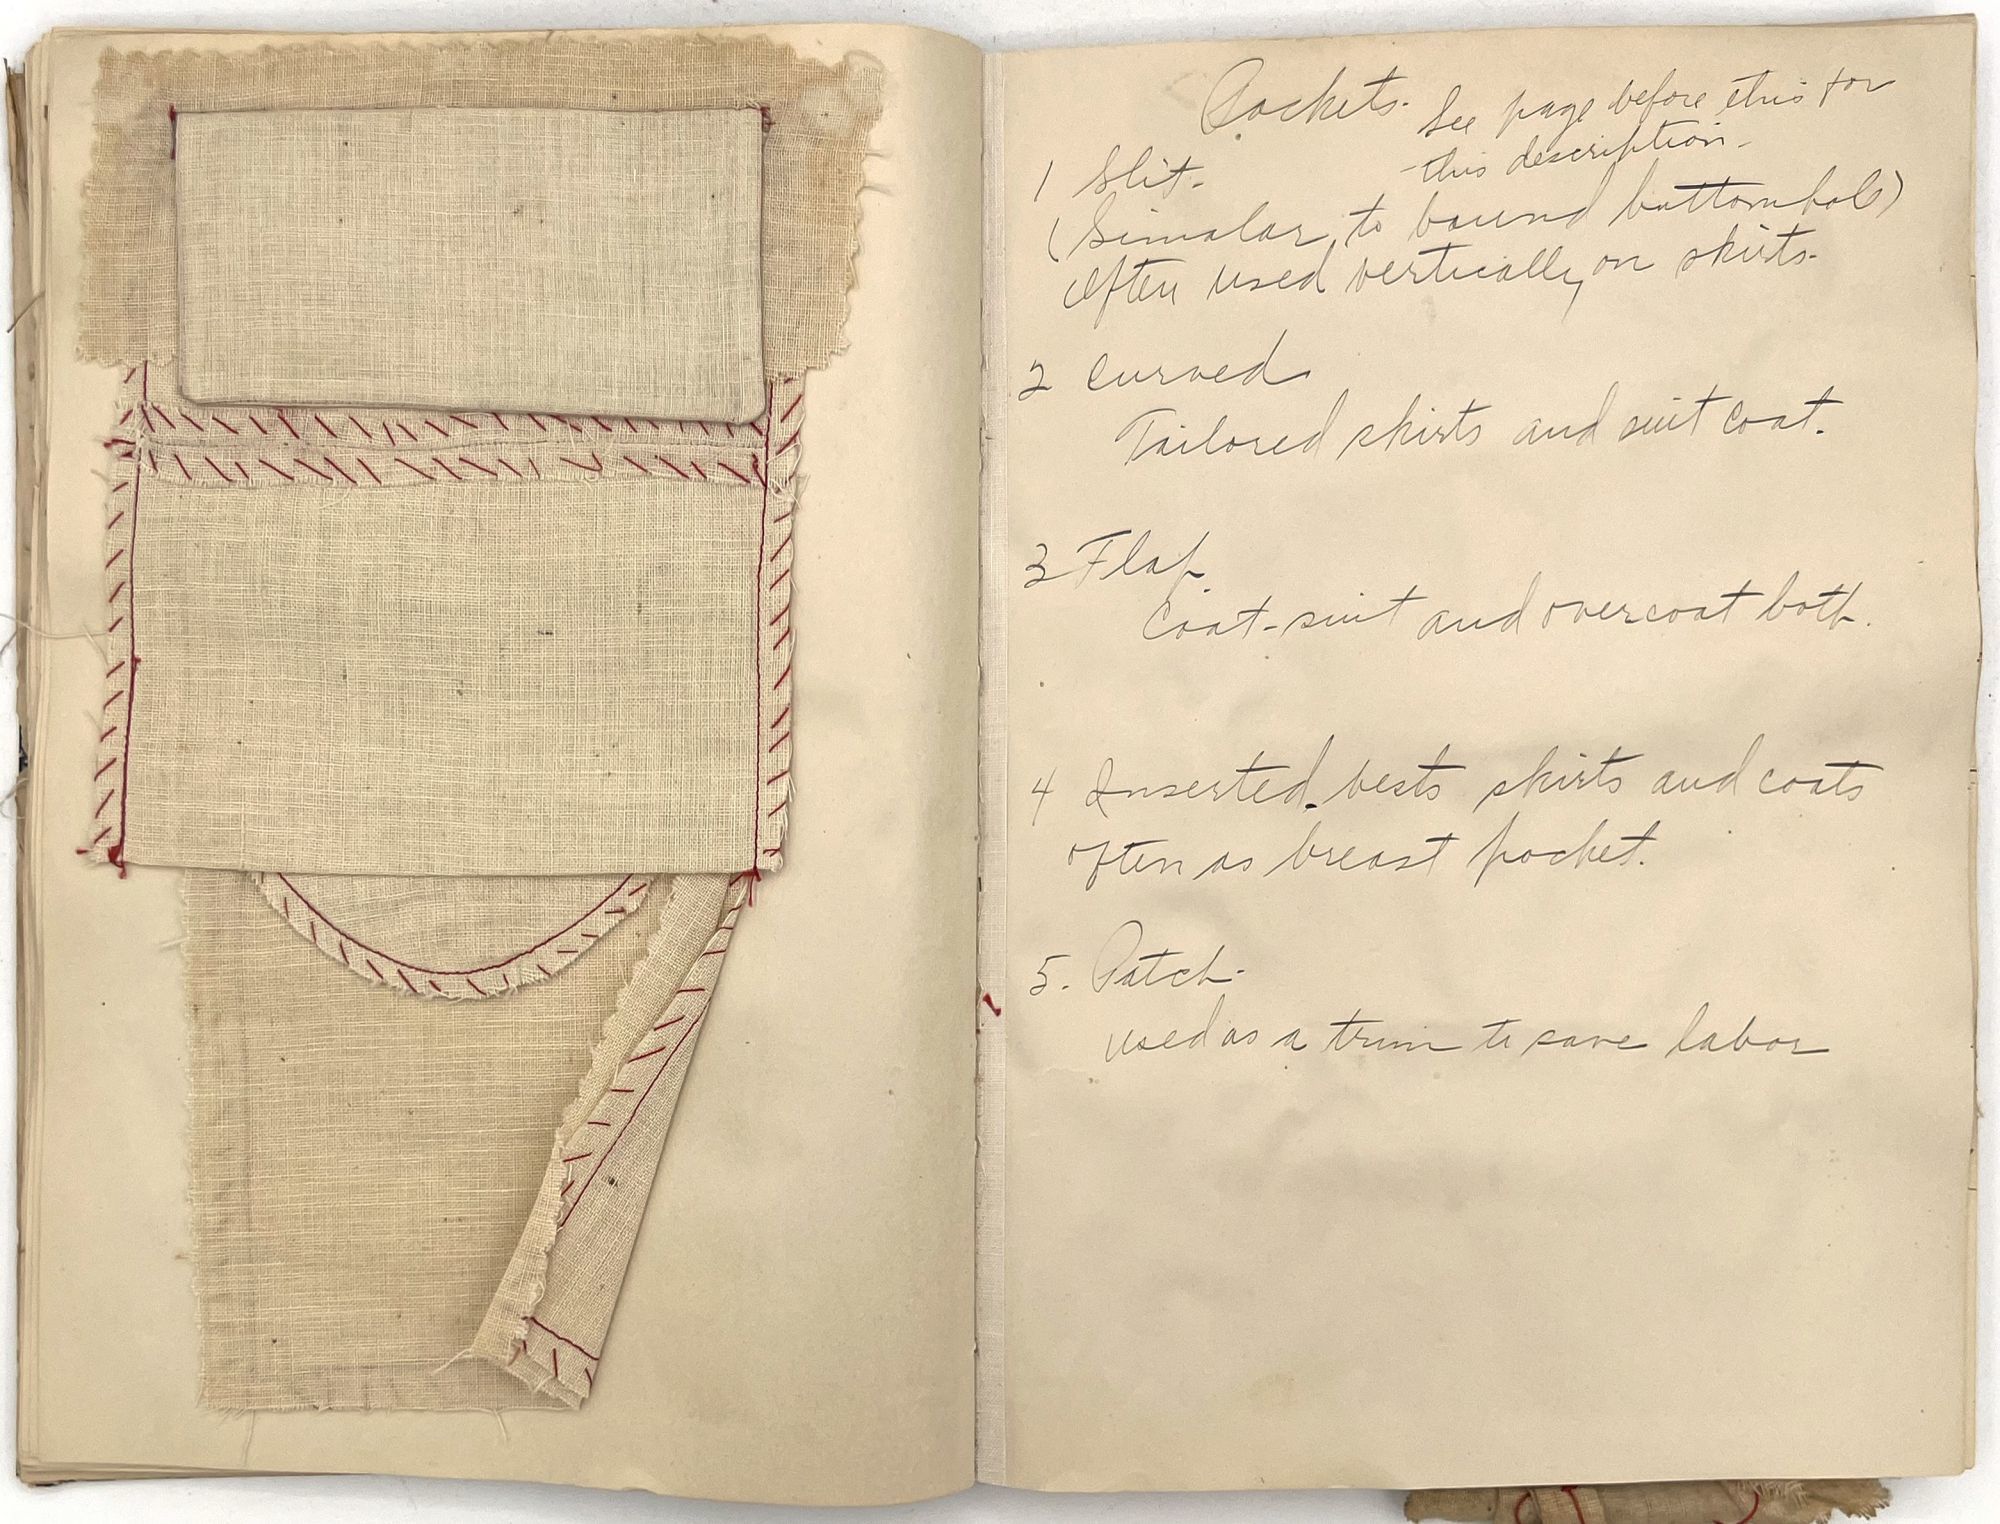 Pockets. See page before this for
this description.
1 Slit.
(Simalar to bound buttonhole)
Often used vertically on skirts.
2 Curved
Tailored skirts and suit coat.
3 Flap
Coat-suit and overcoat both.
4 Inserted. vests skirts and coats
often as breast pocket.
5. Patch.
used as a trim to save labor